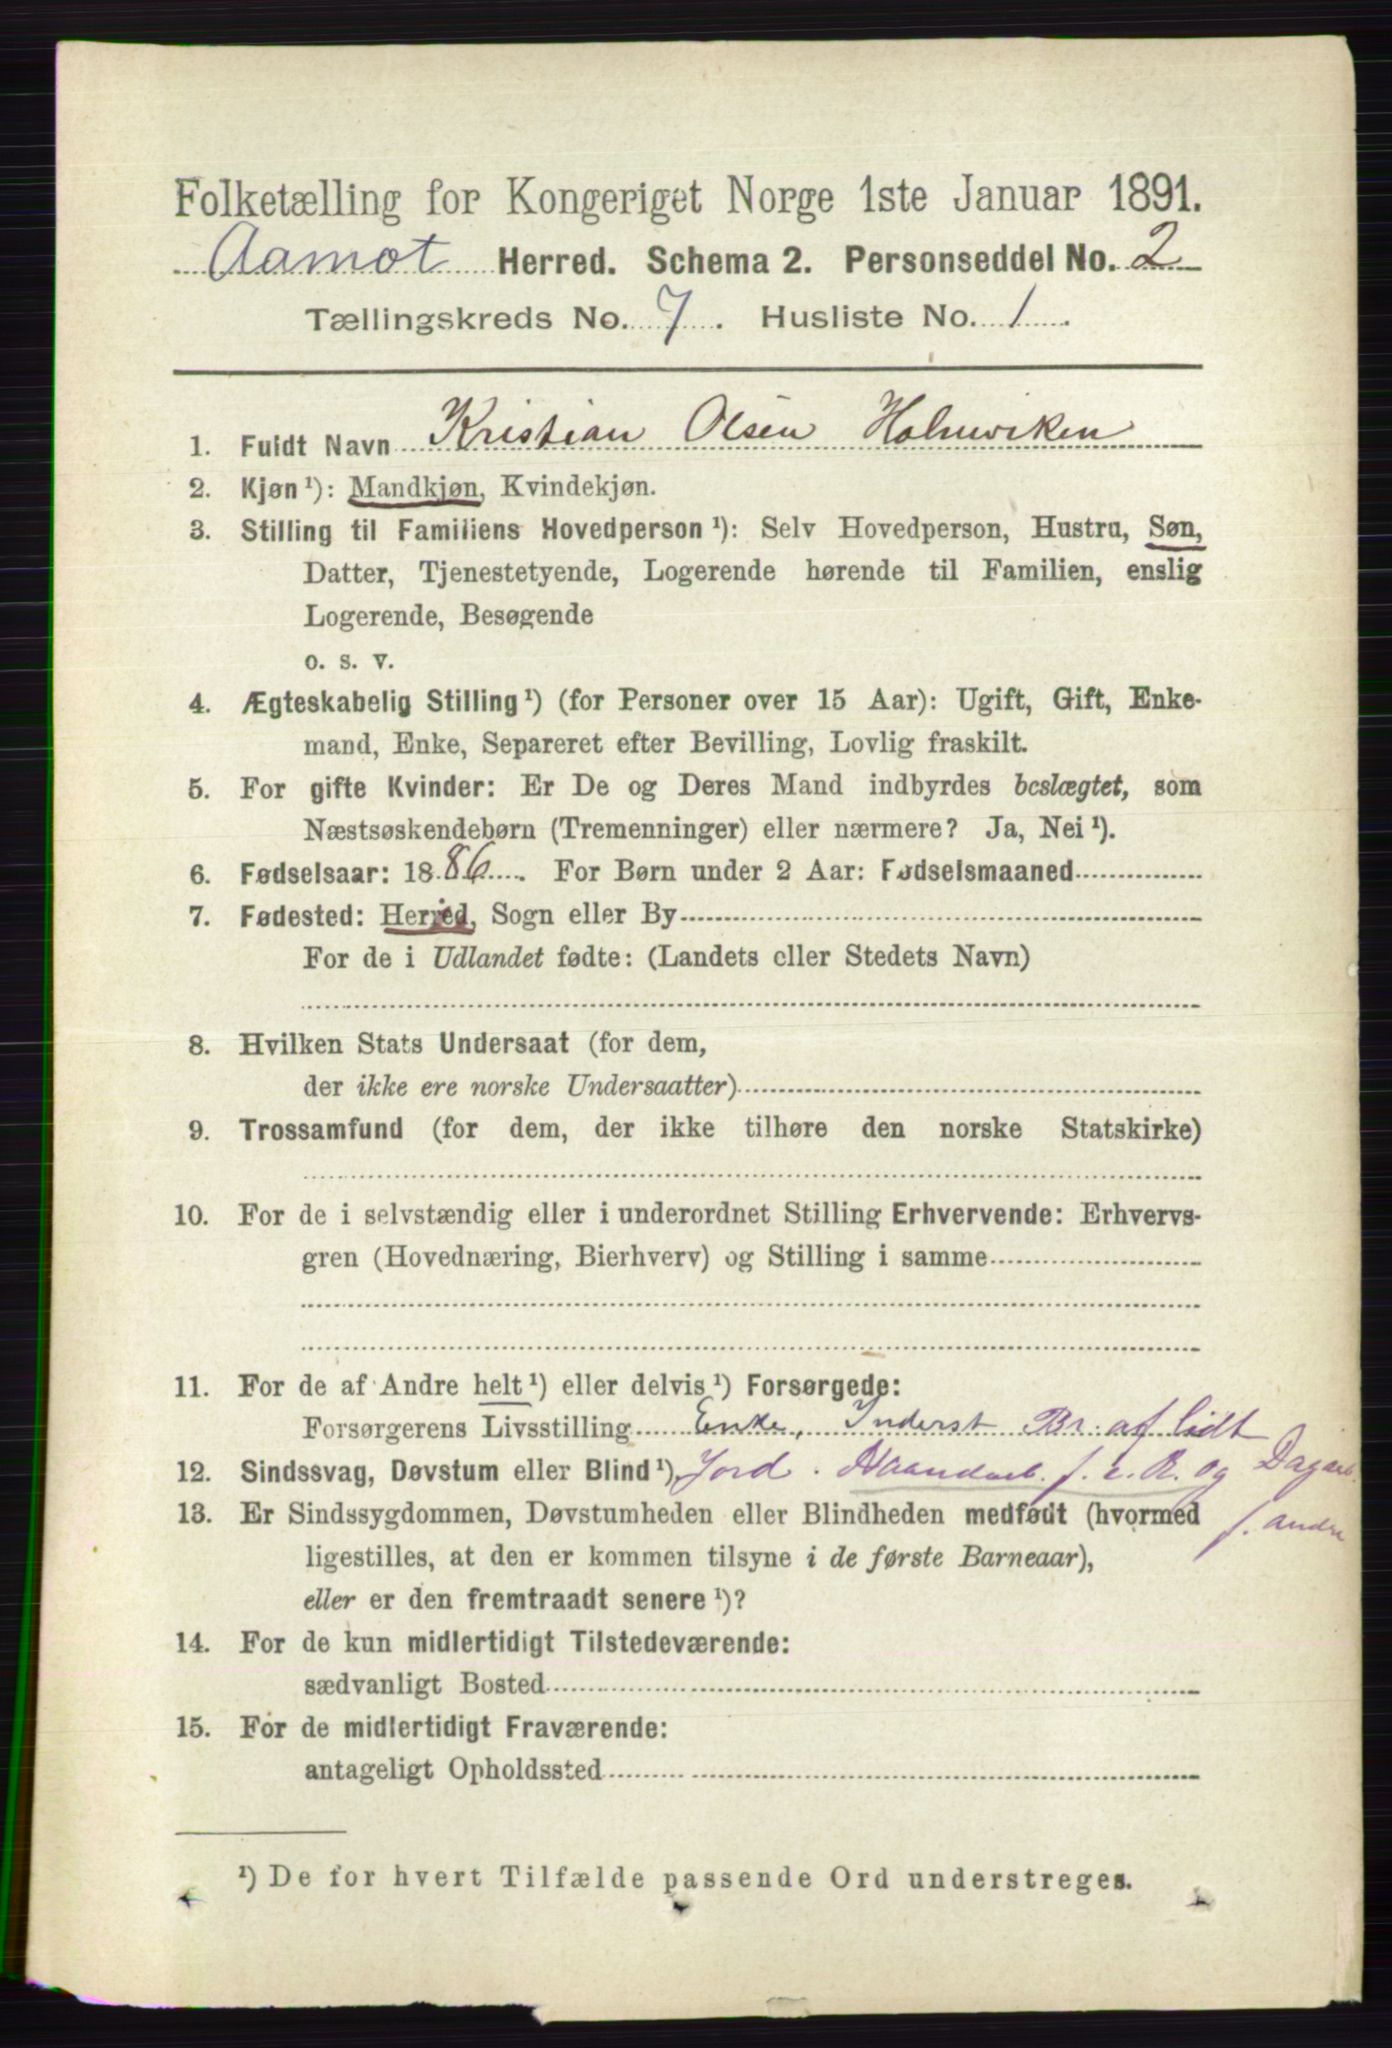 Folketælling for Kongeriget Norge 1ste Januar 1891.
Aamot Herred. Schema 2. Personseddel No. 2
Tællingskreds No. 7. Husliste No. 1.
1. Fuldt Navn Kristian Olsen Holmviken
2. Kjøn¹): Mandkjøn, Kvindekjøn.
3. Stilling til Familiens Hovedperson¹): Selv Hovedperson, Hustru, Søn,
Datter, Tjenestetyende, Logerende hørende til Familien, enslig
Logerende, Besøgende
o. s. v.
4. Ægteskabelig Stilling¹) (for Personer over 15 Aar): Ugift, Gift, Enke-
mand, Enke, Separeret efter Bevilling, Lovlig fraskilt.
5. For gifte Kvinder: Er De og Deres Mand indbyrdes beslægtet, som
Næstsøskendebørn (Tremenninger) eller nærmere? Ja, Nei¹).
6. Fødselsaar: 1886. For Børn under 2 Aar: Fødselsmaaned
7. Fødested: Herred, Sogn eller By
For de i Udlandet fødte: (Landets eller Stedets Navn)
8. Hvilken Stats Undersaat (for dem,
der ikke ere norske Undersaatter)
9. Trossamfund (for dem, der ikke tilhøre den norske Statskirke)
10. For de i selvstændig eller i underordnet Stilling Erhvervende: Erhvervs-
gren (Hovednæring, Bierhverv) og Stilling i samme
11. For de af Andre helt¹) eller delvis¹) Forsørgede:
Forsørgerens Livsstilling Enke, Inderst Br. af lidt
12. Sindssvag, Døvstum eller Blind¹) Jord. Haandarb. f. e. R. og Dagarb.
13. Er Sindssygdommen, Døvstumheden eller Blindheden medfødt (hvormed f. andre
ligestilles, at den er kommen tilsyne i de første Barneaar),
eller er den fremtraadt senere¹)?
14. For de kun midlertidigt Tilstedeværende:
sædvanligt Bosted
15. For de midlertidigt Fraværende:
antageligt Opholdssted
¹) De for hvert Tilfælde passende Ord understreges.